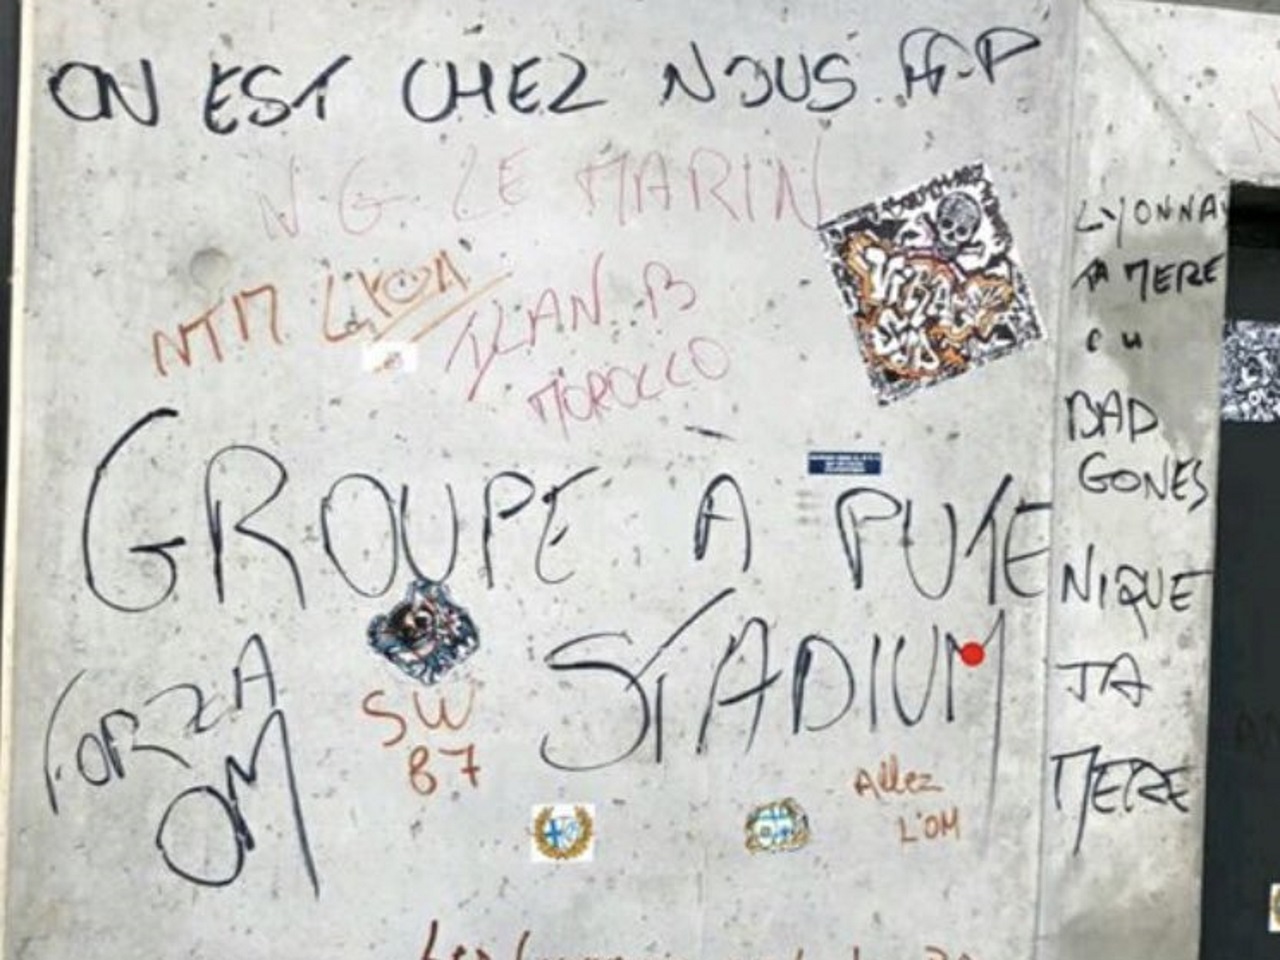 ON EST CHEZ NOUS
N G LE MARIN
NTM LYON
ILAN B
MOROCCO
GROUPE À PUTE
STADIUM
FORZA
OM
SW
87
Allez
L'OM
LYONNAY
TA MERE
BAD
GONES
NIQUE
TA
MERE